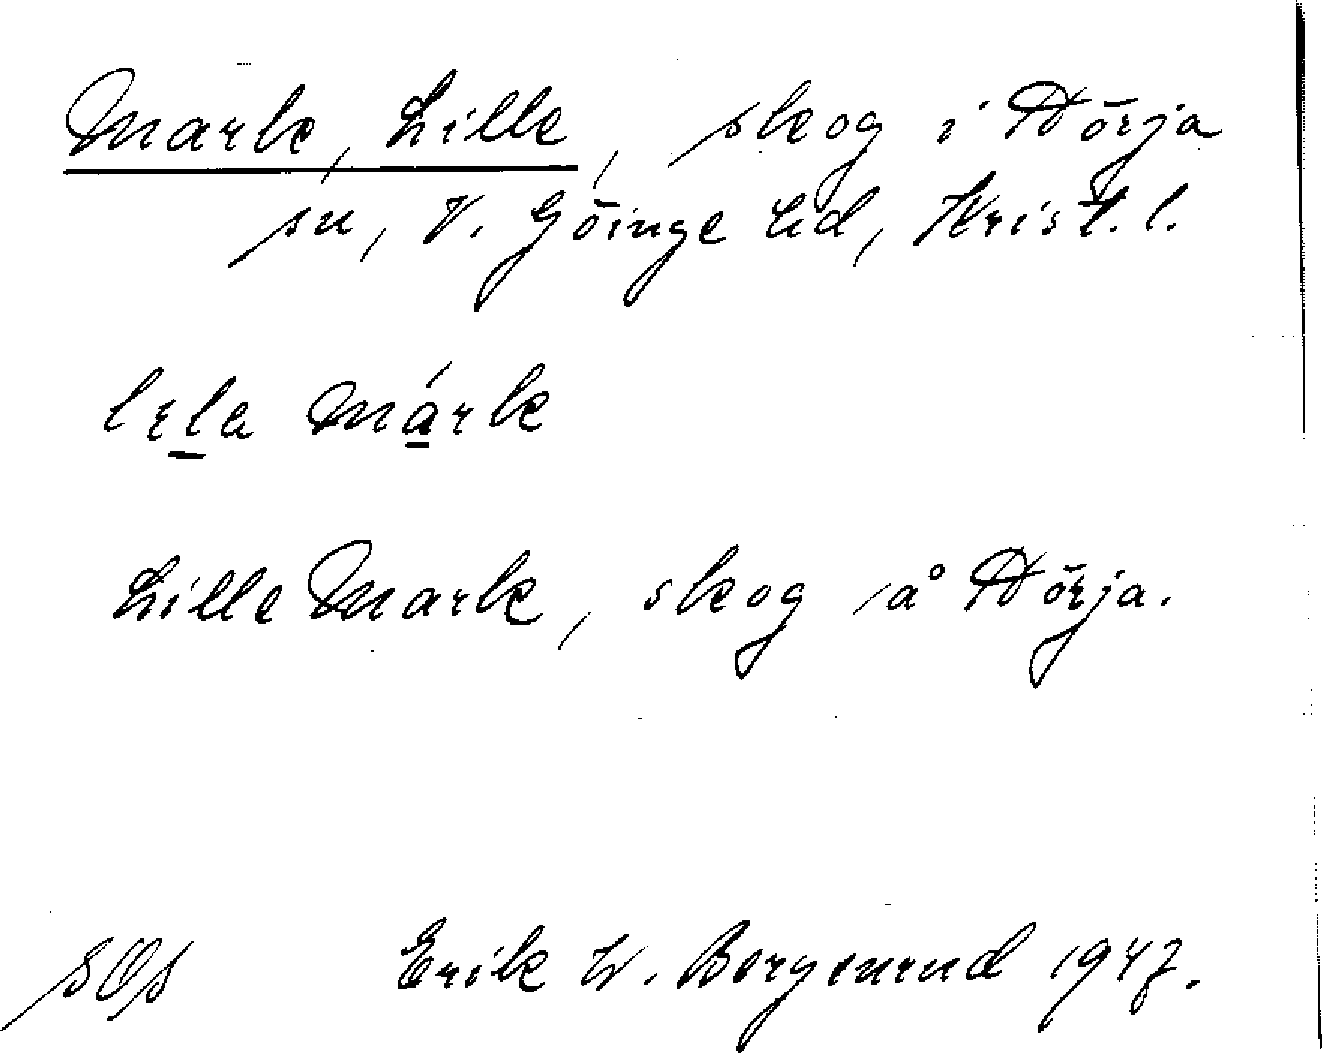 Mark, Lille, skog i Hörja
sn, V. Göinge hd, Krist. l.
lɩla márk
Lille Mark, skog å Hörja.
Erik W. Bergenrud 1947.